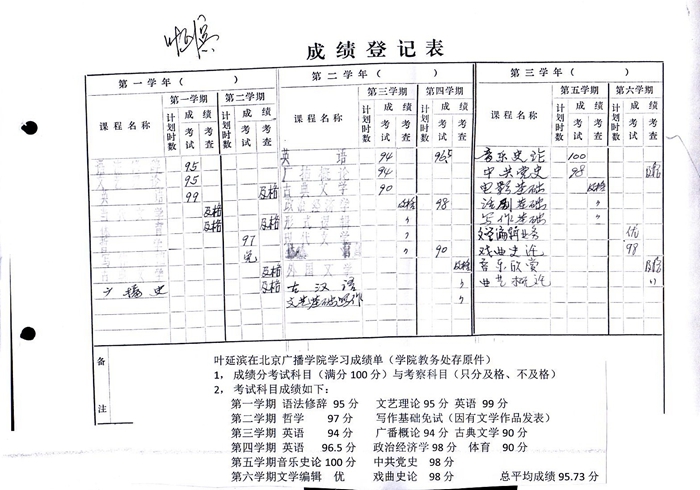 叶延滨
成绩登记表
第一学年( ) 第二学年( ) 第三学年( )
第一学期 第二学期 第三学期 第四学期 第五学期 第六学期
课程名称 计划时数 成绩 考试 考查 计划时数 成绩 考试 考查 课程名称 计划时数 成绩 考试 考查 计划时数 成绩 考试 考查 课程名称 计划时数 成绩 考试 考查 计划时数 成绩 考试 考查
95 英语 94 96.5 音乐史论 100
95 广播概论 94 中共党史 98 及格
英 99 及格 古典文学 90 电影基础 及格
及格 政治经济学 及格 98 话剧基础 〃
及格 〃 写作基础 〃
97 现代文学 〃 文学编辑业务 优
免 〃 90 戏曲史论 98
及格 外国文学 及格 音乐欣赏 及格
广播史 及格 古汉语 〃 曲艺概论 〃
文艺基础写作 〃
备注
叶延滨在北京广播学院学习成绩单(学院教务处存原件)
1,成绩分考试科目(满分100分)与考察科目(只分及格、不及格)
2,考试科目成绩如下:
第一学期 语法修辞 95分 文艺理论 95分 英语 99分
第二学期 哲学 97分 写作基础免试(因有文学作品发表)
第三学期 英语 94分 广番概论 94分 古典文学 90分
第四学期 英语 96.5分 政治经济学 98分 体育 90分
第五学期音乐史论 100分 中共党史 98分
第六学期文学编辑 优 戏曲史论 98分 总平均成绩 95.73分